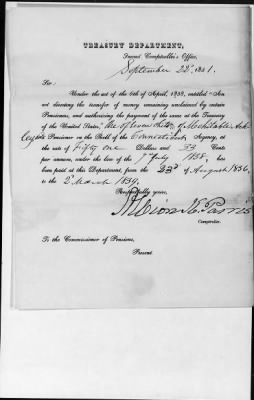 TREASURY DEPARTMENT,
Second Comptroller's Office,
September 22d, 1841.
Sir:
Under the act of the 6th of April, 1838, entitled "An
act directing the transfer of money remaining unclaimed by certain
Pensioners, and authorizing the payment of the same at the Treasury
of the United States," the of Mehitable Ack
ley a Pensioner on the Roll of the Connecticut Agency, at
the rate of Fifty one Dollars and 33 Cents
per annum, under the law of the 7 July 1838, has
been paid at this Department, from the 23d of August 1836,
to the 2d March 1839.
Respectfully yours,
Albion K. Parris
Comptroller.
To the Commissioner of Pensions,
Present.